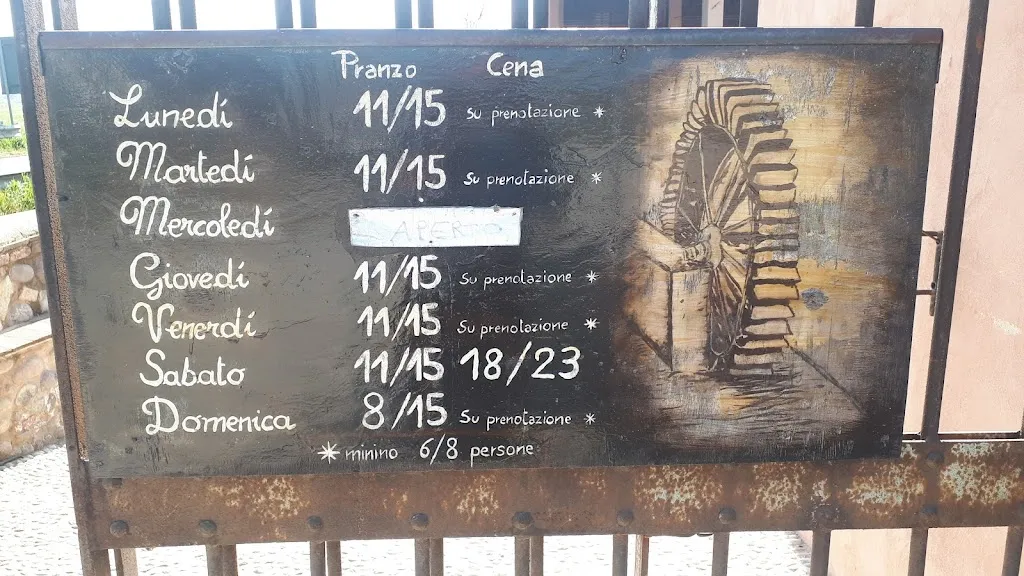 Pranzo Cena
Lunedí 11/15 su prenotazione *
Martedí 11/15 Su prenotazione *
Mercoledí APERTO
Giovedí 11/15 Su prenotazione *
Venerdí 11/15 Su prenotazione *
Sabato 11/15 18/23
Domenica 8/15 Su prenotazione *
* minino 6/8 persone